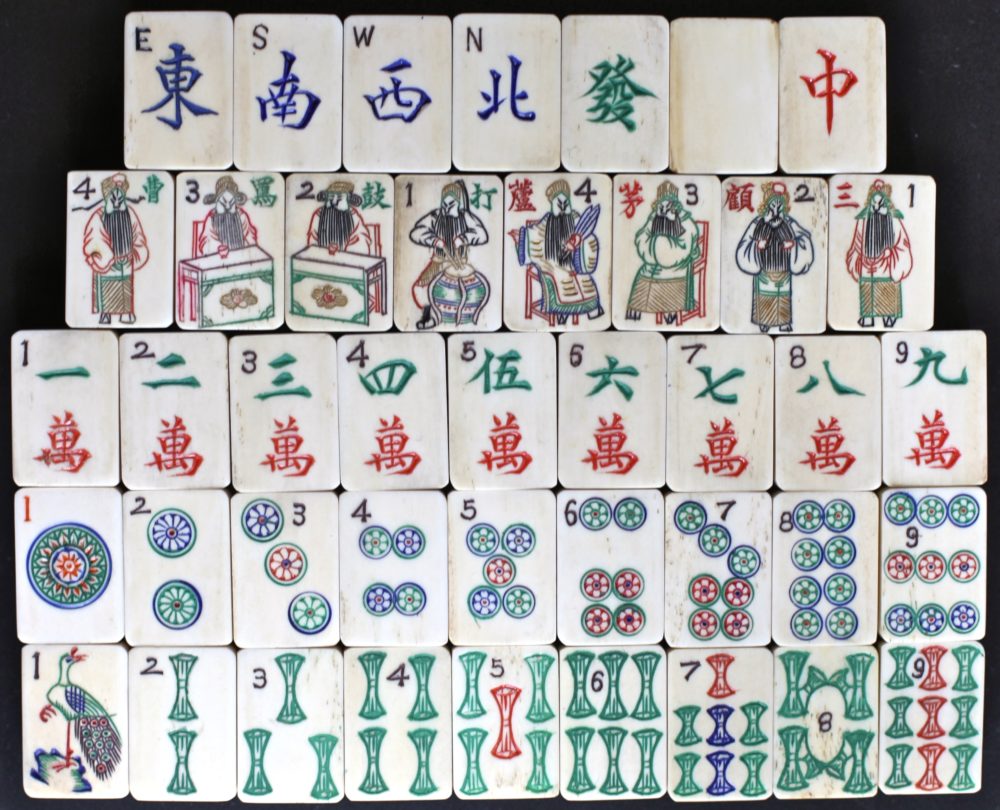 E S W N
東 南 西 北 發 中
4 曹 3 罵 2 鼓 1 打 蘆 4 茅 3 顧 2 三 1
1 2 3 4 5 6 7 8 9
一 二 三 四 伍 六 七 八 九
萬 萬 萬 萬 萬 萬 萬 萬 萬
1 2 3 4 5 6 7 8 9
1 2 3 4 5 6 7 8 9